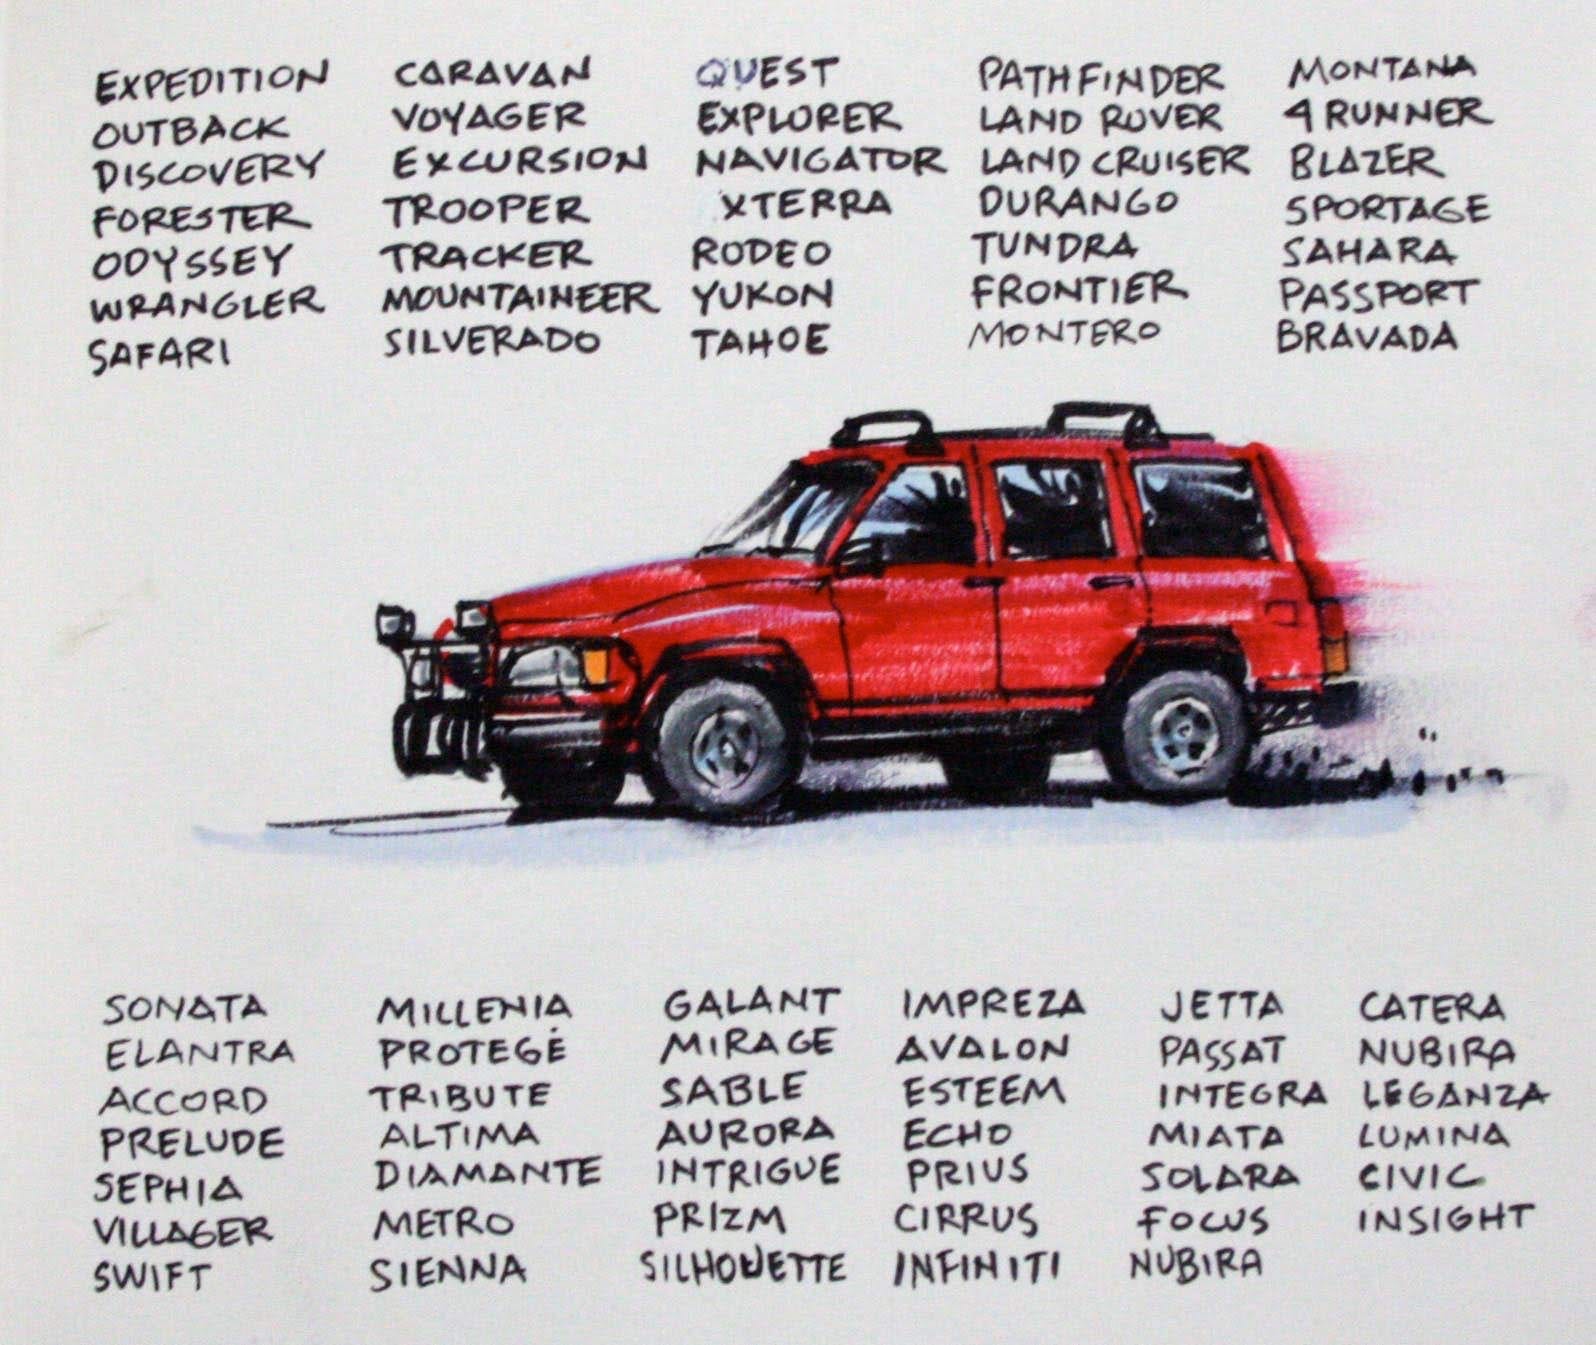 EXPEDITION CARAVAN QUEST PATHFINDER MONTANA
OUTBACK VOYAGER EXPLORER LAND ROVER 4 RUNNER
DISCOVERY EXCURSION NAVIGATOR LAND CRUISER BLAZER
FORESTER TROOPER XTERRA DURANGO SPORTAGE
ODYSSEY TRACKER RODEO TUNDRA SAHARA
WRANGLER MOUNTAINEER YUKON FRONTIER PASSPORT
SAFARI SILVERADO TAHOE MONTERO BRAVADA
SONATA MILLENIA GALANT IMPREZA JETTA CATERA
ELANTRA PROTEGÉ MIRAGE AVALON PASSAT NUBIRA
ACCORD TRIBUTE SABLE ESTEEM INTEGRA LEGANZA
PRELUDE ALTIMA AURORA ECHO MIATA LUMINA
SEPHIA DIAMANTE INTRIGUE PRIUS SOLARA CIVIC
VILLAGER METRO PRIZM CIRRUS FOCUS INSIGHT
SWIFT SIENNA SILHOUETTE INFINITI NUBIRA